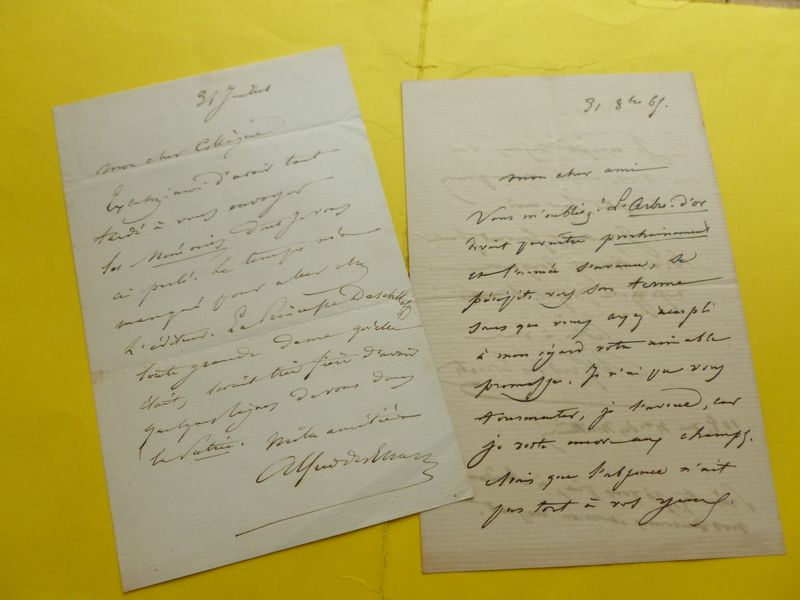 31 Juillet
Mon cher Collègue
Excusez-moi d'avoir tant
tardé à vous envoyer
les Mémoires dont je vous
ai parlé. Le temps m'a
manqué pour aller chez
l'éditeur. La Princesse
toute grande dame qu'elle
était, serait très fière d'avoir
quelques lignes de vous dans
la Patrie. Mille amitiés
Alfred des Essarts
31 8bre 65.
Mon cher ami
Vous m'oubliez! L'Arbre d'or
devait paraître prochainement
et l'année s'avance, se
précipite vers son terme
sans que vous ayez accompli
à mon égard votre aimable
promesse. Je n'ai pu vous
tourmenter, je l'avoue, car
je reste encore aux champs.
Mais que l'absence n'ait
pas tort à vos yeux.